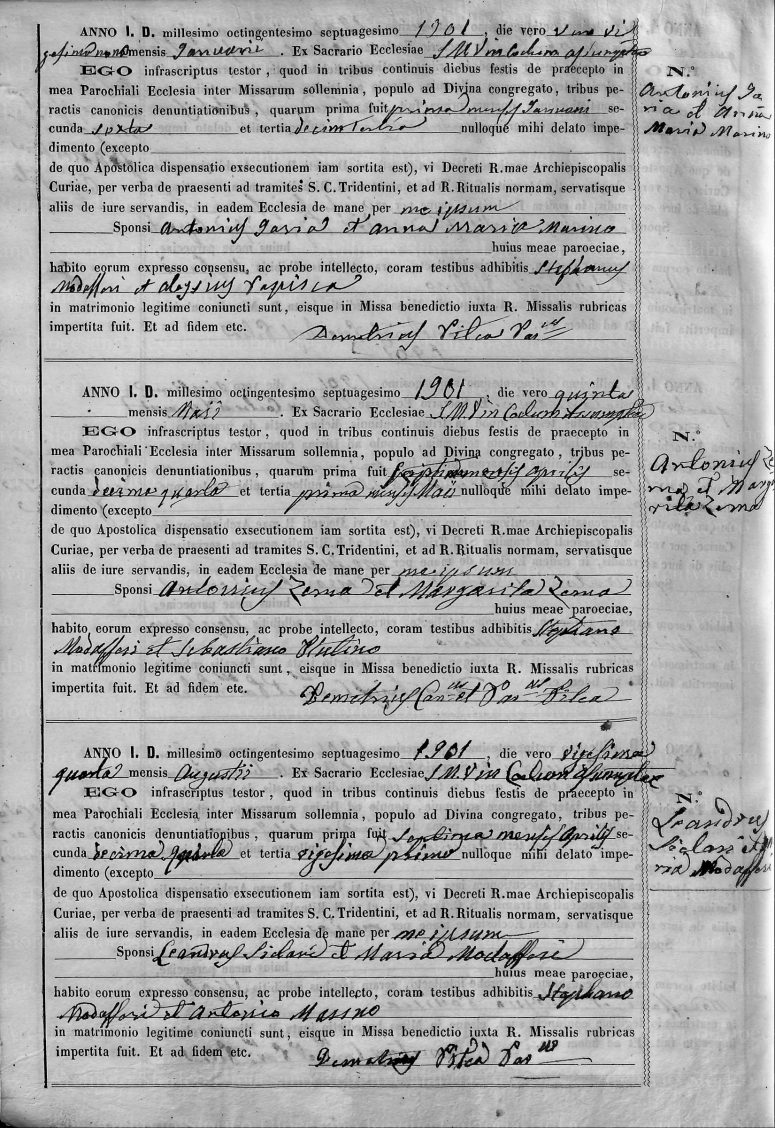 ANNO I. D. millesimo octingentesimo septuagesimo 1901, die vero
mensis Januarii. Ex Sacrario Ecclesiae S. M. V. in Coelum
EGO infrascriptus testor, quod in tribus continuis diebus festis de praecepto in
mea Parochiali Ecclesia inter Missarum sollemnia, populo ad Divina congregato, tribus pe-
ractis canonicis denuntiationibus, quarum prima fuit prima mensis Januarii se-
cunda sexta et tertia decim tertia nulloque mihi delato impe-
dimento (excepto
de quo Apostolica dispensatio exsecutionem iam sortita est), vi Decreti R.mae Archiepiscopalis
Curiae, per verba de praesenti ad tramites S. C. Tridentini, et ad R. Ritualis normam, servatisque
aliis de iure servandis, in eadem Ecclesia de mane per me ipsum
Sponsi Antonius et Anna Maria Marino
huius meae paroeciae,
habito eorum expresso consensu, ac probe intellecto, coram testibus adhibitis Stephanus
Modafferi et Aloysius
in matrimonio legitime coniuncti sunt, eisque in Missa benedictio iuxta R. Missalis rubricas
impertita fuit. Et ad fidem etc. Demetrius Vilca Par
N.º
Antonius
et Anna
Maria Marino
ANNO I. D. millesimo octingentesimo septuagesimo 1901, die vero quinta
mensis Maii. Ex Sacrario Ecclesiae S. M. V. in Coelum
EGO infrascriptus testor, quod in tribus continuis diebus festis de praecepto in
mea Parochiali Ecclesia inter Missarum sollemnia, populo ad Divina congregato, tribus pe-
ractis canonicis denuntiationibus, quarum prima fuit septima mensis Aprilis se-
cunda decima quarta et tertia prima mensis Maii nulloque mihi delato impe-
dimento (excepto
de quo Apostolica dispensatio exsecutionem iam sortita est), vi Decreti R.mae Archiepiscopalis
Curiae, per verba de praesenti ad tramites S. C. Tridentini, et ad R. Ritualis normam, servatisque
aliis de iure servandis, in eadem Ecclesia de mane per me ipsum
Sponsi Antonius Zema et Margarita Zema
huius meae paroeciae,
habito eorum expresso consensu, ac probe intellecto, coram testibus adhibitis Stephano
Modafferi et Sebastiano
in matrimonio legitime coniuncti sunt, eisque in Missa benedictio iuxta R. Missalis rubricas
impertita fuit. Et ad fidem etc. Demetrius Can et Par Vilca
N.º
Antonius Ze
ma et Marga
rita Zema
ANNO I. D. millesimo octingentesimo septuagesimo 1901, die vero vigesima
quarta mensis Augustii. Ex Sacrario Ecclesiae S. M. V. in Coelum
EGO infrascriptus testor, quod in tribus continuis diebus festis de praecepto in
mea Parochiali Ecclesia inter Missarum sollemnia, populo ad Divina congregato, tribus pe-
ractis canonicis denuntiationibus, quarum prima fuit septima mensis Aprilis se-
cunda decima quarta et tertia vigesima primo nulloque mihi delato impe-
dimento (excepto
de quo Apostolica dispensatio exsecutionem iam sortita est), vi Decreti R.mae Archiepiscopalis
Curiae, per verba de praesenti ad tramites S. C. Tridentini, et ad R. Ritualis normam, servatisque
aliis de iure servandis, in eadem Ecclesia de mane per me ipsum
Sponsi Leandrus Siclari et Maria Modafferi
huius meae paroeciae,
habito eorum expresso consensu, ac probe intellecto, coram testibus adhibitis Stephano
Modafferi et Antonio
in matrimonio legitime coniuncti sunt, eisque in Missa benedictio iuxta R. Missalis rubricas
impertita fuit. Et ad fidem etc. Demetrius Vilca Par
N.º
Leandrus
Siclari et
Modafferi